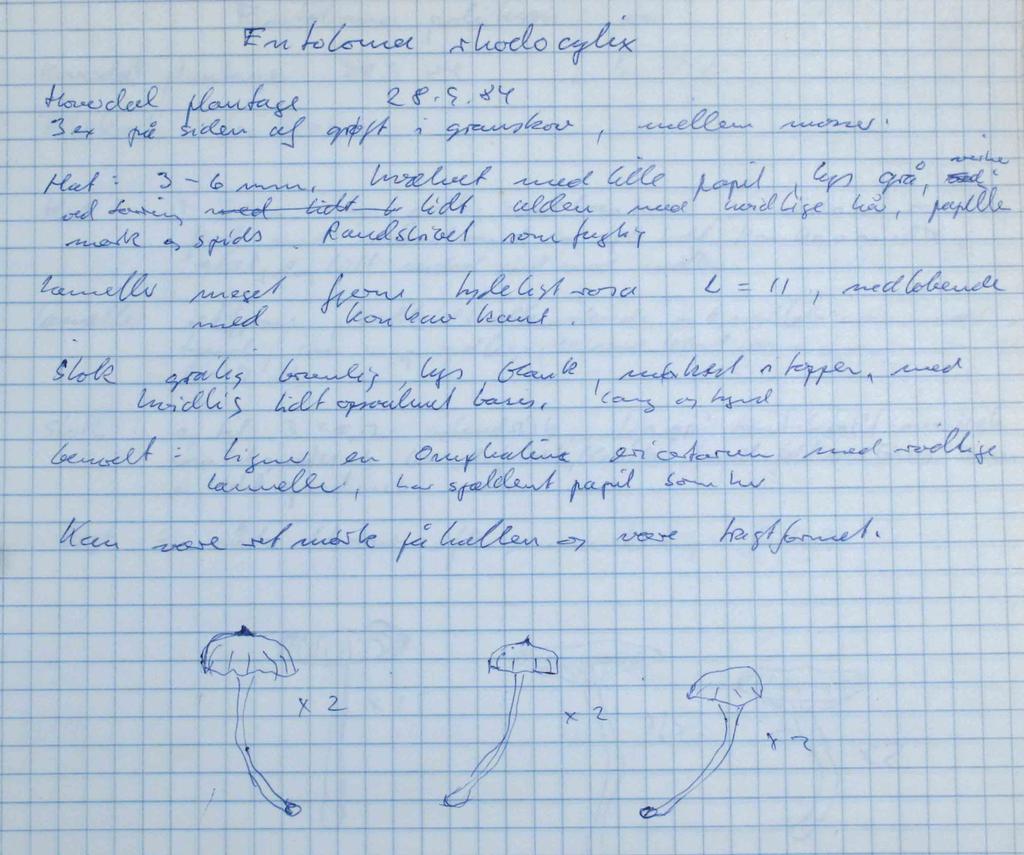 Entoloma rhodocylix
plantage 28.9.84
3 ex på siden af grøft i granskov, mellem mosser.
Hat: 3-6 mm, hvælvet med lille papil, lys grå,
ved tørring med lidt lidt ulden med hvidlige hår, papille
mørk og spids. Randstribet som fugtig
Lameller meget fjerne tydeligt rosa L = 11, nedløbende
med konkav kant.
Stok grålig brunlig lys blank, mørkest i toppen, med
hvidlig lidt opsvulmet basis. lang og tynd
bemælt: ligner en Omphalina ericetorum med rødlige
lameller, har sjældent papil som her
Kan være ret mørk på hatten og være tragtformet.
x 2
x 2
x 2